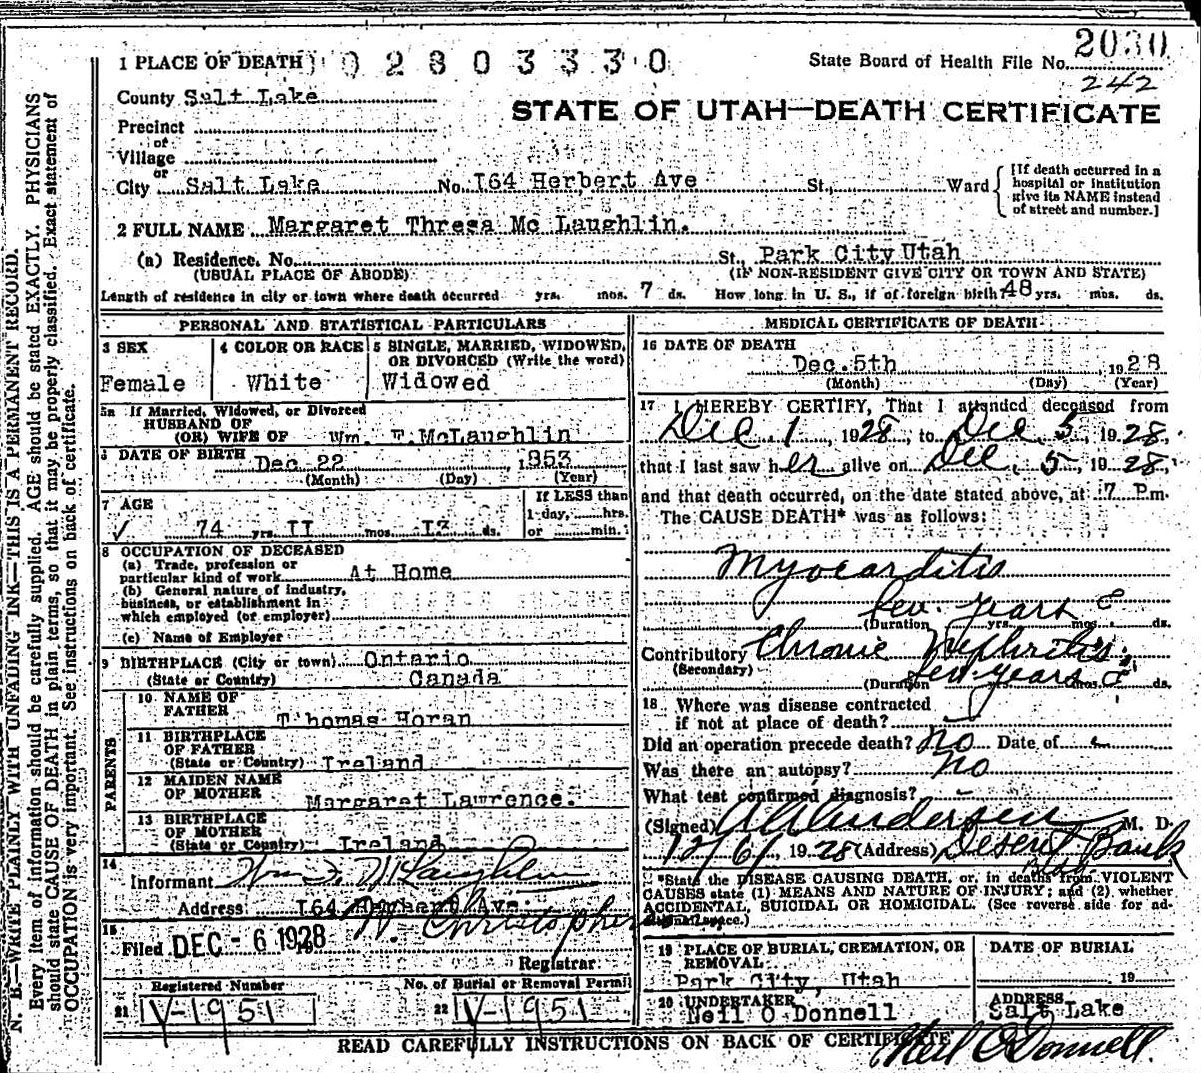 2030
1 PLACE OF DEATH 0 2 8 0 3 3 3 0 State Board of Health File No.
242
County Salt Lake
STATE OF UTAH—DEATH CERTIFICATE
Precinct
of
Village
or
City Salt Lake No. I64 Herbert Ave St., Ward
[If death occurred in a
hospital or institution
give its NAME instead
of street and number.]
2 FULL NAME Margaret Thresa Mc Laughlin.
(a) Residence. No. St., Park City Utah
(USUAL PLACE OF ABODE) (IF NON-RESIDENT GIVE CITY OR TOWN AND STATE)
Length of residence in city or town where death occurred yrs. mos. 7 ds. How long in U. S., if of foreign birth? 48 yrs. mos. ds.
PERSONAL AND STATISTICAL PARTICULARS
3 SEX 4 COLOR OR RACE 5 SINGLE, MARRIED, WIDOWED,
OR DIVORCED (Write the word)
Female White Widowed
5a If Married, Widowed, or Divorced
HUSBAND OF
(OR) WIFE OF Wm. F. McLaughlin
6 DATE OF BIRTH Dec 22, 1853
(Month) (Day) (Year)
7 AGE If LESS than
1 day, hrs.
74 yrs II mos I3 ds. or min.
8 OCCUPATION OF DECEASED
(a) Trade, profession or
particular kind of work At Home
(b) General nature of industry,
business, or establishment in
which employed (or employer)
(c) Name of Employer
9 BIRTHPLACE (City or town) Ontario
(State or Country) Canada
PARENTS
10 NAME OF
FATHER Thomas Horan
11 BIRTHPLACE
OF FATHER
(State or Country) Ireland
12 MAIDEN NAME
OF MOTHER Margaret Lawrence.
13 BIRTHPLACE
OF MOTHER
(State or Country) Ireland
14
Informant Wm. F. McLaughlin
Address I64 Herbert Ave.
15 W. Christopherson
Filed DEC - 6 1928
Registrar
Registered Number No. of Burial or Removal Permit
21 V-1951 22 V-1951
MEDICAL CERTIFICATE OF DEATH
16 DATE OF DEATH
Dec. 5th 1928
(Month) (Day) (Year)
17 I HEREBY CERTIFY, That I attended deceased from
Dec 1, 1928, to Dec 5, 1928,
that I last saw her alive on Dec 5, 1928
and that death occurred, on the date stated above, at 7 P.m.
The CAUSE DEATH* was as follows:
Myocarditis
Sev. years
(Duration yrs. mos. ds.
Contributory Chronic Nephritis
(Secondary) Sev. years
(Duration yrs. mos. ds.
18 Where was disease contracted
if not at place of death?
Did an operation precede death? no Date of
Was there an autopsy? no
What test confirmed diagnosis? -
(Signed) Andersen M. D.
12/6/ 1928 (Address) Deseret Bank
*State the DISEASE CAUSING DEATH, or, in deaths from VIOLENT
CAUSES state (1) MEANS AND NATURE OF INJURY; and (2) whether
ACCIDENTAL, SUICIDAL OR HOMICIDAL. (See reverse side for ad-
ditional space.)
19 PLACE OF BURIAL, CREMATION, OR
REMOVAL
Park City, Utah
DATE OF BURIAL
19
20 UNDERTAKER
Neil O Donnell
ADDRESS
Salt Lake
Neil O'Donnell.
READ CAREFULLY INSTRUCTIONS ON BACK OF CERTIFICATE
N. B.—WRITE PLAINLY WITH UNFADING INK—THIS IS A PERMANENT RECORD.
Every item of information should be carefully supplied. AGE should be stated EXACTLY. PHYSICIANS
should state CAUSE OF DEATH in plain terms, so that it may be properly classified. Exact statement of
OCCUPATION is very important. See instructions on back of certificate.